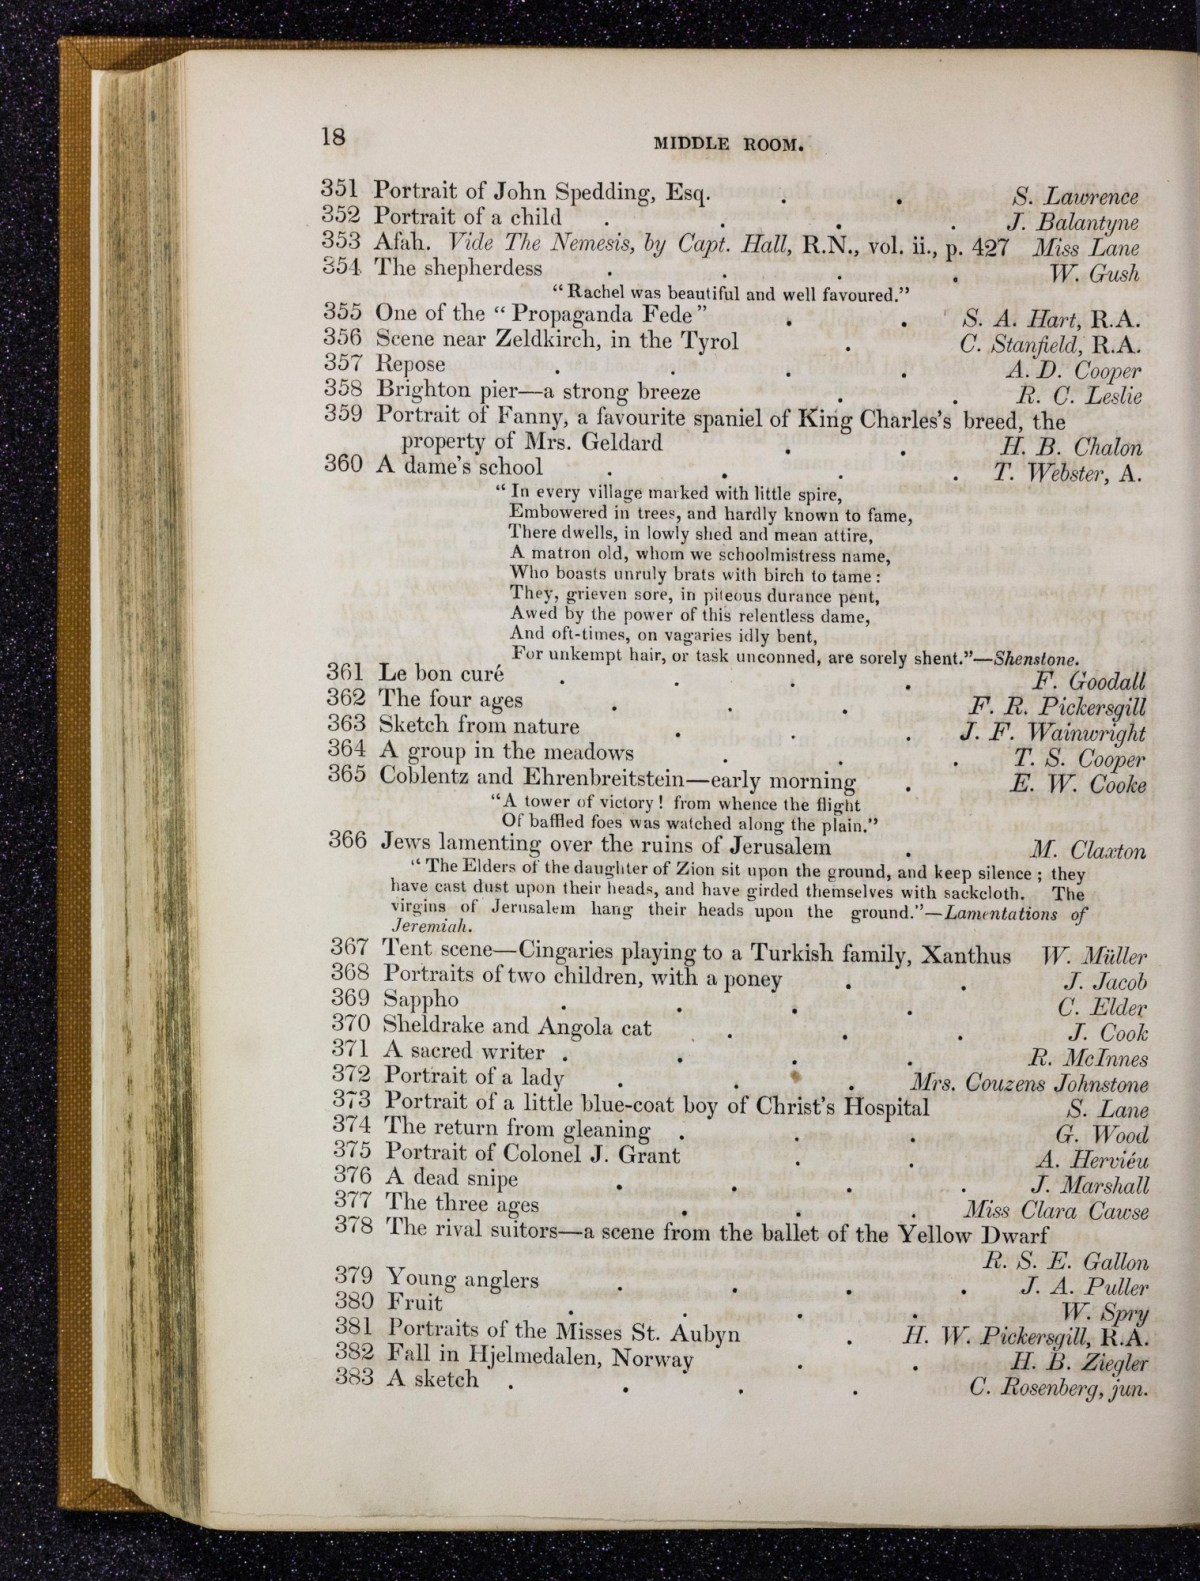 18
MIDDLE ROOM.
351 Portrait of John Spedding, Esq. . . S. Lawrence
352 Portrait of a child . . . . J. Balantyne
353 Afah. Vide The Nemesis, by Capt. Hall, R.N., vol. ii., p. 427 Miss Lane
354 The shepherdess . . . . W. Gush
“Rachel was beautiful and well favoured.”
355 One of the “Propaganda Fede” . . S. A. Hart, R.A.
356 Scene near Zeldkirch, in the Tyrol . C. Stanfield, R.A.
357 Repose . . . . A. D. Cooper
358 Brighton pier—a strong breeze . . R. C. Leslie
359 Portrait of Fanny, a favourite spaniel of King Charles's breed, the
property of Mrs. Geldard . . H. B. Chalon
360 A dame's school . . . . T. Webster, A.
“In every village marked with little spire,
Embowered in trees, and hardly known to fame,
There dwells, in lowly shed and mean attire,
A matron old, whom we schoolmistress name,
Who boasts unruly brats with birch to tame:
They, grieven sore, in piteous durance pent,
Awed by the power of this relentless dame,
And oft-times, on vagaries idly bent,
For unkempt hair, or task unconned, are sorely shent.”—Shenstone.
361 Le bon curé . . . . F. Goodall
362 The four ages . . . F. R. Pickersgill
363 Sketch from nature . . . J. F. Wainwright
364 A group in the meadows . . . T. S. Cooper
365 Coblentz and Ehrenbreitstein—early morning . E. W. Cooke
“A tower of victory! from whence the flight
Of baffled foes was watched along the plain.”
366 Jews lamenting over the ruins of Jerusalem . M. Claxton
“The Elders of the daughter of Zion sit upon the ground, and keep silence; they
have cast dust upon their heads, and have girded themselves with sackcloth. The
virgins of Jerusalem hang their heads upon the ground.”—Lamentations of
Jeremiah.
367 Tent scene—Cingaries playing to a Turkish family, Xanthus W. Müller
368 Portraits of two children, with a poney . . J. Jacob
369 Sappho . . . . C. Elder
370 Sheldrake and Angola cat . . . J. Cook
371 A sacred writer . . . . R. McInnes
372 Portrait of a lady . . . Mrs. Couzens Johnstone
373 Portrait of a little blue-coat boy of Christ's Hospital S. Lane
374 The return from gleaning . . . G. Wood
375 Portrait of Colonel J. Grant . . A. Herviéu
376 A dead snipe . . . . J. Marshall
377 The three ages . . . Miss Clara Cawse
378 The rival suitors—a scene from the ballet of the Yellow Dwarf
R. S. E. Gallon
379 Young anglers . . . . J. A. Puller
380 Fruit . . . . W. Spry
381 Portraits of the Misses St. Aubyn . H. W. Pickersgill, R.A.
382 Fall in Hjelmedalen, Norway . . H. B. Ziegler
383 A sketch . . . . C. Rosenberg, jun.